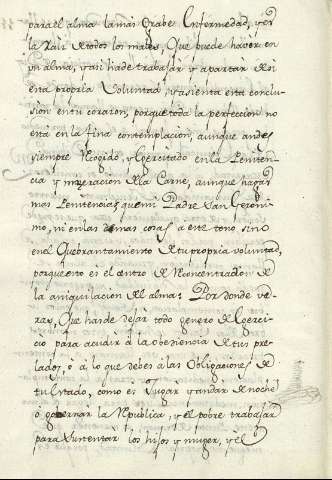 para el alma la mas Grabe Enfermedad, y es
la Raiz de todos los males, Que puede haver en
un alma, y asi hade trabajar y apartar de si
esta propria Voluntad, y asienta esta conclu
sion en tu corazon, porque toda la perfeccion no
esta en la fina contemplacion, aunque andes
siempre Recogido, y Exercitado en la Peniten
cia y mazeracion de la Carne, aunque hagas
mas Penitencias que mi Padre San Geroni
mo, ni en las demas cosas a este tono sino
en el Quebrantamiento de tu propria voluntad,
porque esto es el centro de Reconcentracion de
la aniquilacion del alma: Por donde ve
ras, Que has de dejar todo genero de Exerci
cio para acudir a la obediencia de tus pre
lados, ò à lo que debes à las Obligaciones de
tu Estado, como es Jugar y andar de noche
ò governar la Republica, y el pobre trabajar
para sustentar los hijos y muger, y el